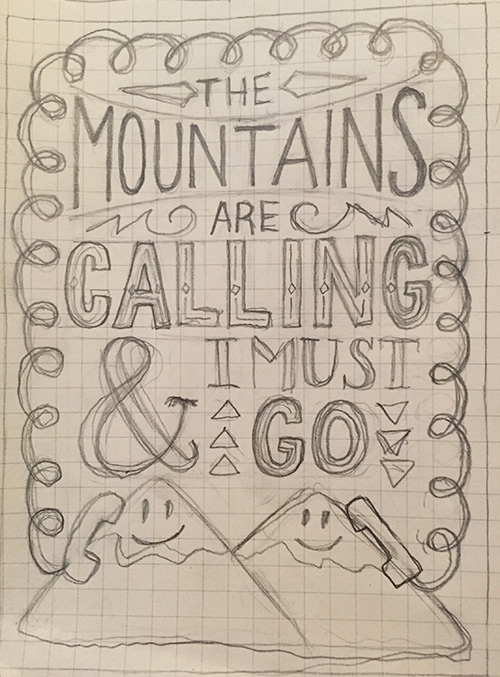 THE
MOUNTAINS
ARE
CALLING
& I MUST
GO